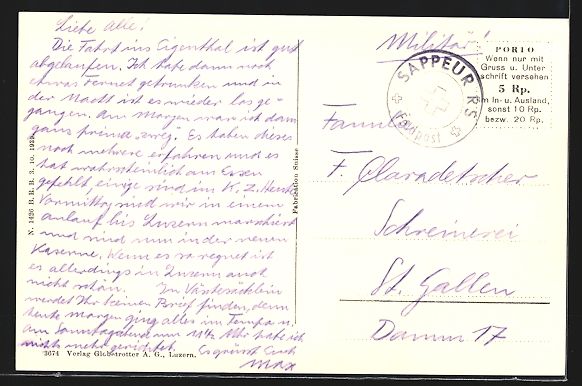 Liebe Alle!
Die Fahrt ins Eigenthal ist gut
abgelaufen. Ich habe dann noch
etwas Fernet getrunken und in
der Nacht ist es wieder los ge-
gangen. Am Morgen war ich dann
ganz "zweg". Es haben dieses
noch mehrere erfahren und es
hat wahrscheinlich am Essen
gefehlt, einige sind im K. Z. Heute
Vormittag sind wir in einem
anlauf bis Luzern marschiert
und sind nun in der neuen
Kaserne. Wenn es so regnet ist
es allerdings in Luzern auch
nicht schön. Im Wäschesäcklein
werdet Ihr keinen Brief finden, denn
heute Morgen ging alles im Tempo u.
am Sonntagabend um Uhr habe ich
nichts mehr gerichtet. Es grüsst Euch
Max
3674 Verlag Globetrotter A. G., Luzern.
N. 1426 B. R. B. 3. 10. 1929.
Fabrication Suisse
Militär!
SAPPEUR RS
Feldpost
PORTO
Wenn nur mit
Gruss u. Unter
schrift versehen
5 Rp.
im In- u. Ausland,
sonst 10 Rp.
bezw. 20 Rp.
Familie
F. Claradetscher
Schreinerei
St. Gallen
Damm 17